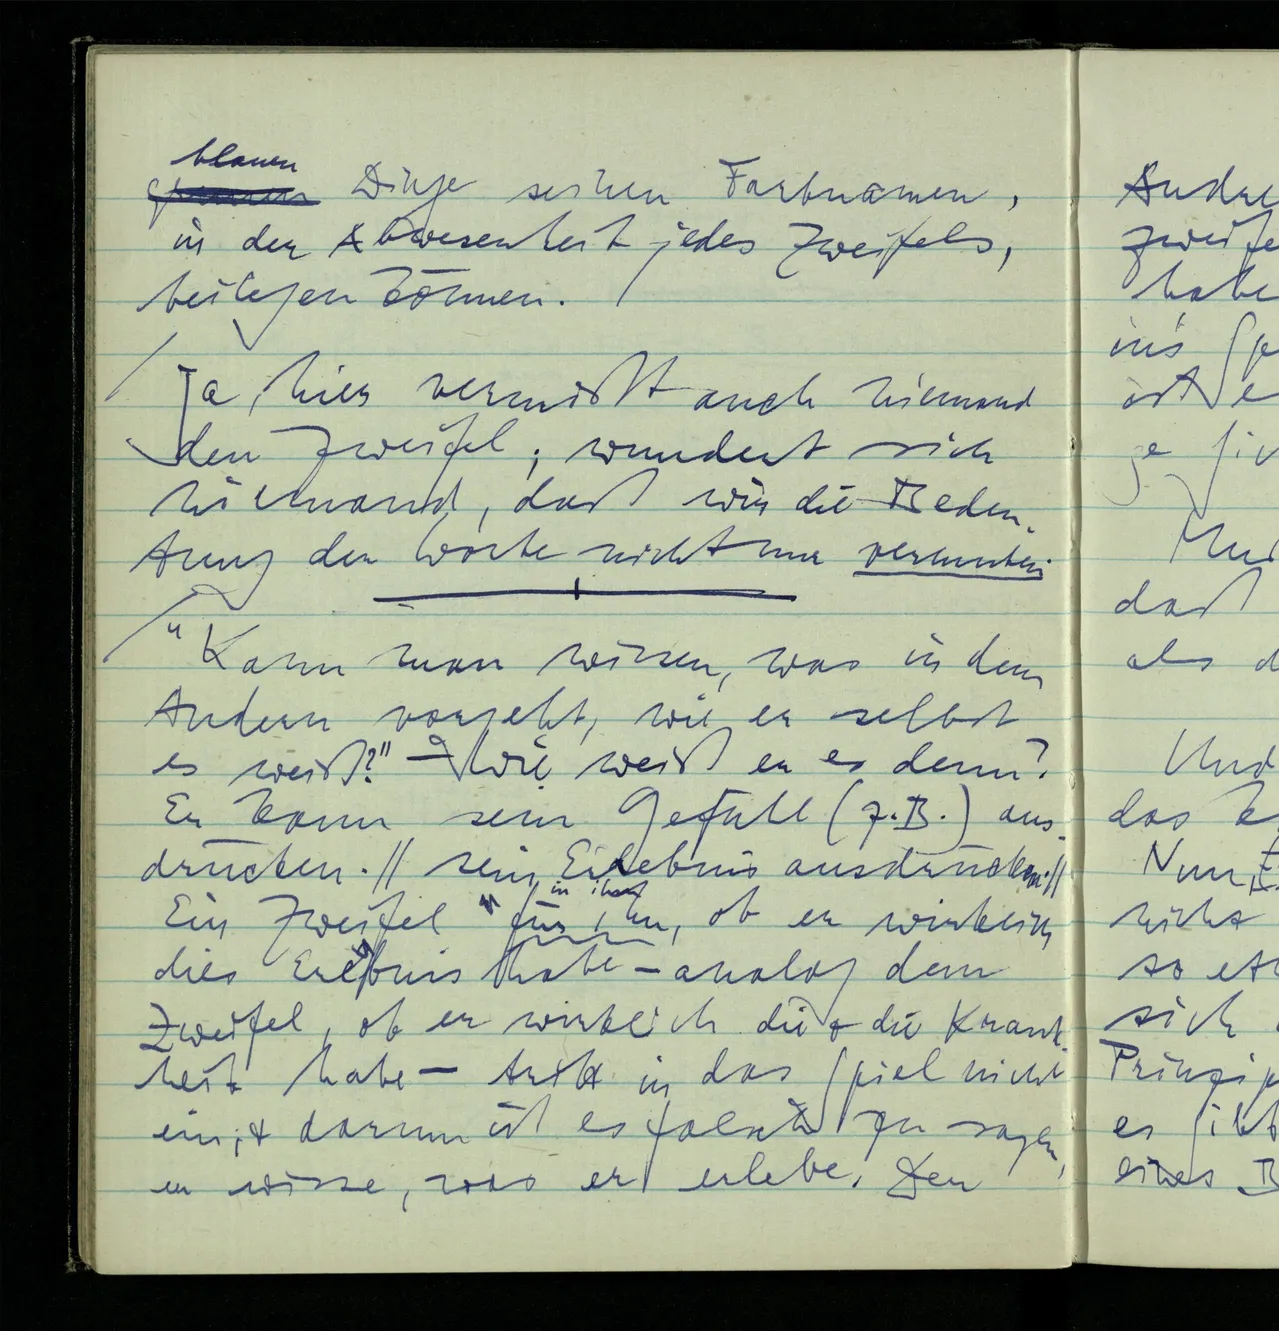 blauen
grünen Dinge seinen Farbnamen,
in der Abwesenheit jedes Zweifels,
beilegen können.
Ja, hier vermißt auch niemand
den Zweifel; wundert sich
niemand, daß wir die Bedeu-
tung der Worte nicht nur vermuten
"Kann man wissen, was in dem
Andern vorgeht, wie er selbst
es weiß?" – Wie weiß er es denn?
Er kann sein Gefühl (z.B.) aus-
drücken. // sein Erlebnis ausdrücken. //
in ihm
Ein Zweifel für ihn, ob er wirklich
dies Erlebnis habe – analog dem
Zweifel, ob er wirklich die & die Krank-
heit habe – tritt in das Spiel nicht
ein; & darum ist es falsch zu sagen,
er wisse, was er erlebe. Der
Andre
zweife
habe
ins Sp
ist e
daß
als d
Und
das
Nun
nicht
so et
sich
Prinzip
es gibt
eines B